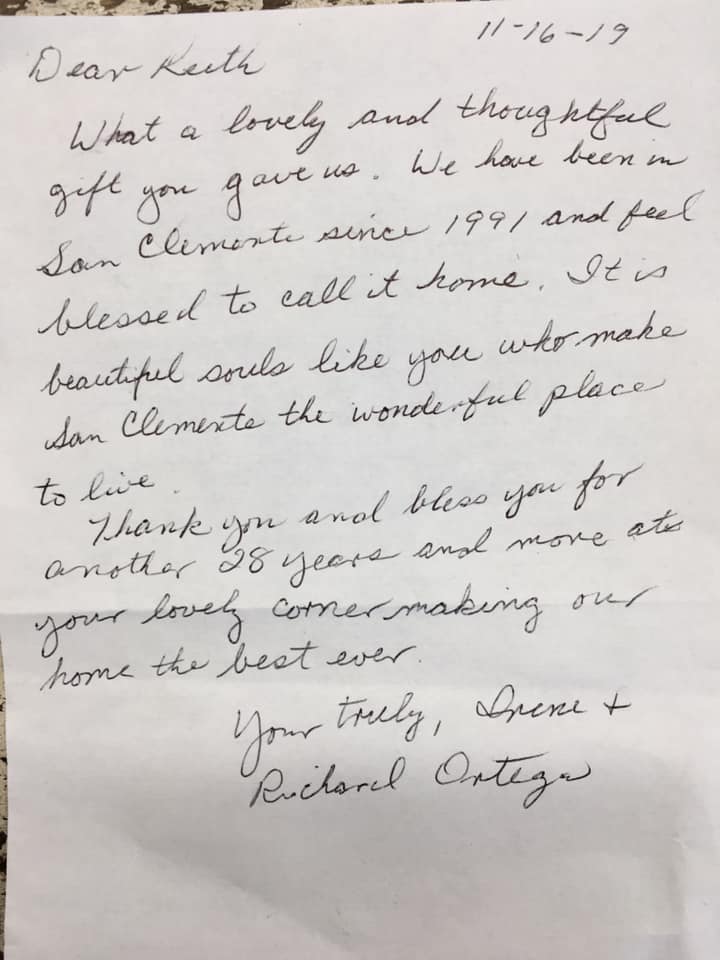 11-16-19
Dear Keith
What a lovely and thoughtful
gift you gave us. We have been in
San Clemente since 1991 and feel
blessed to call it home. It is
beautiful souls like you who make
San Clemente the wonderful place
to live.
Thank you and bless you for
another 28 years and more at
your lovely corner making our
home the best ever.
Your truly, Irene +
Richard Ortega